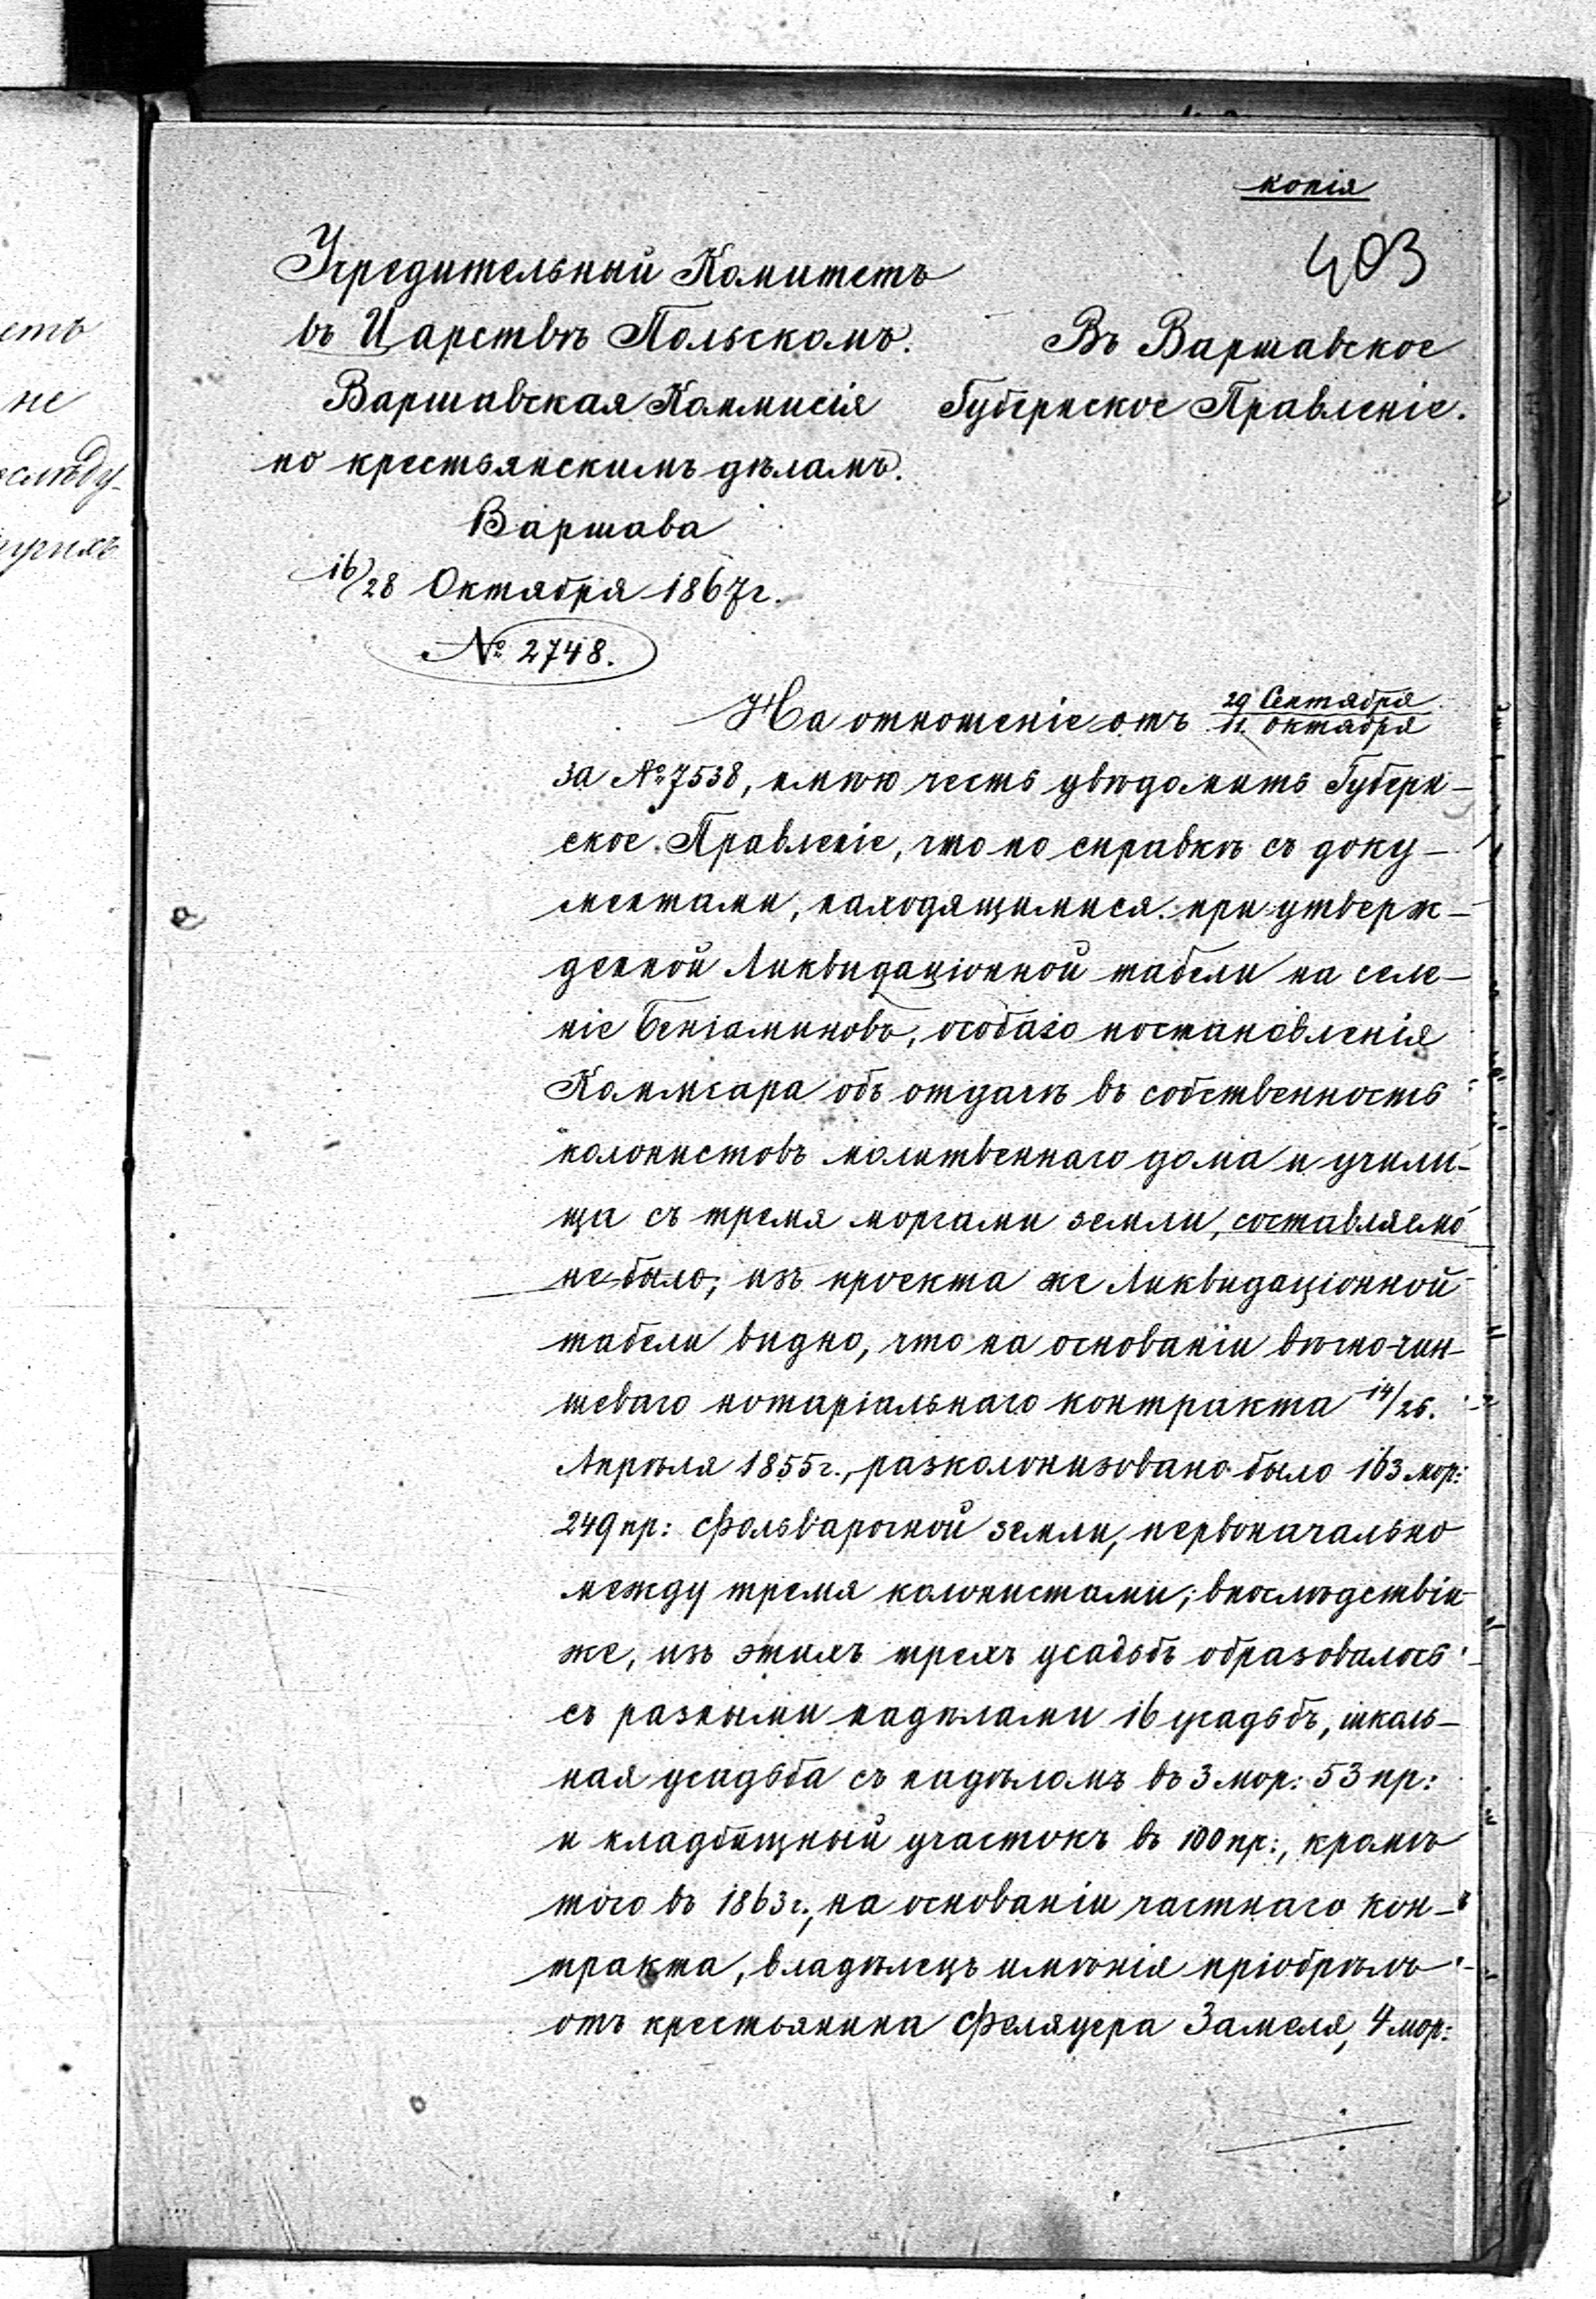 копія
403
Учредительный Комитетъ
въ Царствѣ Польскомъ.
Варшавская Коммисія
по крестьянскимъ дѣламъ.
Варшава
16/28 Октября 1867 г.
№ 2748.
Въ Варшавское
Губернское Правленіе.
На отношеніе отъ 29 Сентября / 11 Октября
за № 7538, имѣю честь увѣдомить Губерн-
ское Правленіе, что по справкѣ съ доку-
ментами, находящимися при утверж-
денной Ликвидаціонной табели на селе-
ніе Беніаминовъ, особаго постановленія
Коммсара объ отдачѣ въ собственность
колонистовъ молитвеннаго дома и учили-
ща съ тремя моргами земли, составляемо
не было; изъ проекта же Ликвидаціонной
табели видно, что на основаніи вѣчно-чин-
шеваго нотаріальнаго контракта 14/26.
Апрѣля 1855 г., разколонизовано было 163 мор:
249 пр: фольварочной земли, первоначально
между тремя колонистами; впослѣдствіи
же, изъ этихъ трехъ усадьбъ образовалось
съ разными надѣлами 16 усадьбъ, школь-
ная усадьба съ надѣломъ въ 3 мор: 53 пр:
и кладбищный участокъ въ 100 пр:, кромѣ
того въ 1863 г., на основаніи частнаго кон-
тракта, владѣлецъ имѣнія пріобрѣлъ
отъ крестьянина Замеля, 4 мор:
еть
не
слѣду-